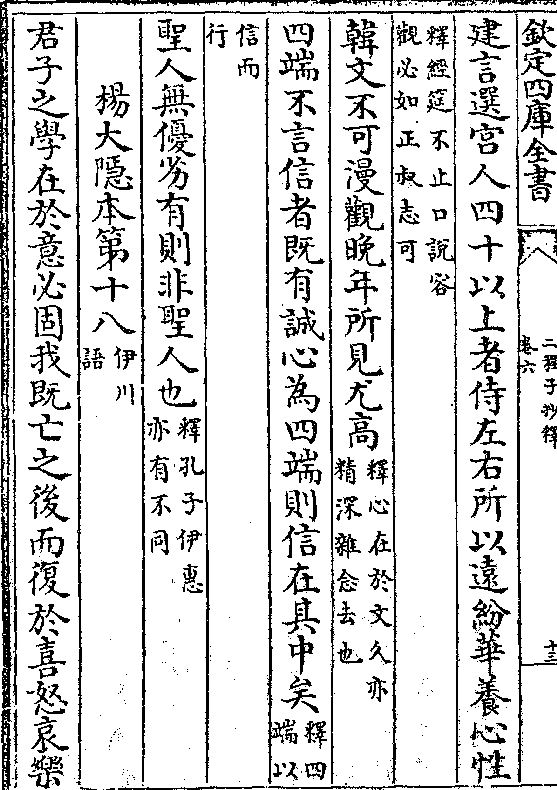 欽定四庫全書
二程子抄釋
卷六
十三
建言選宮人四十以上者侍左右所以遠紛華養心性
釋經筵不止口說容
觀必如正叔志可
韓文不可漫觀晚年所見尤高
釋心在於文久亦
精深雜念去也
四端不言信者既有誠心為四端則信在其中矣
釋四
端以
信而
行
聖人無優劣有則非聖人也
釋孔子伊惠
亦有不同
楊大隱本第十八
伊川
語
君子之學在於意必固我既亡之後而復於喜怒哀樂